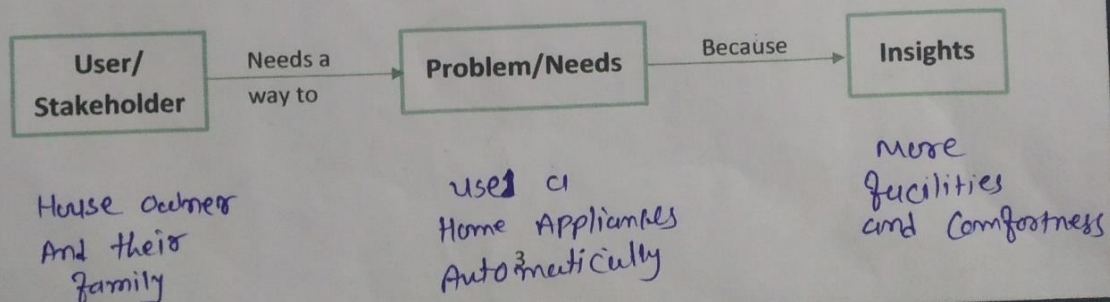 User/
Stakeholder
Needs a
way to
Problem/Needs
Because
Insights
House owner
And their
family
use a
Home Appliances
Automatically
More
facilities
and Comfortness